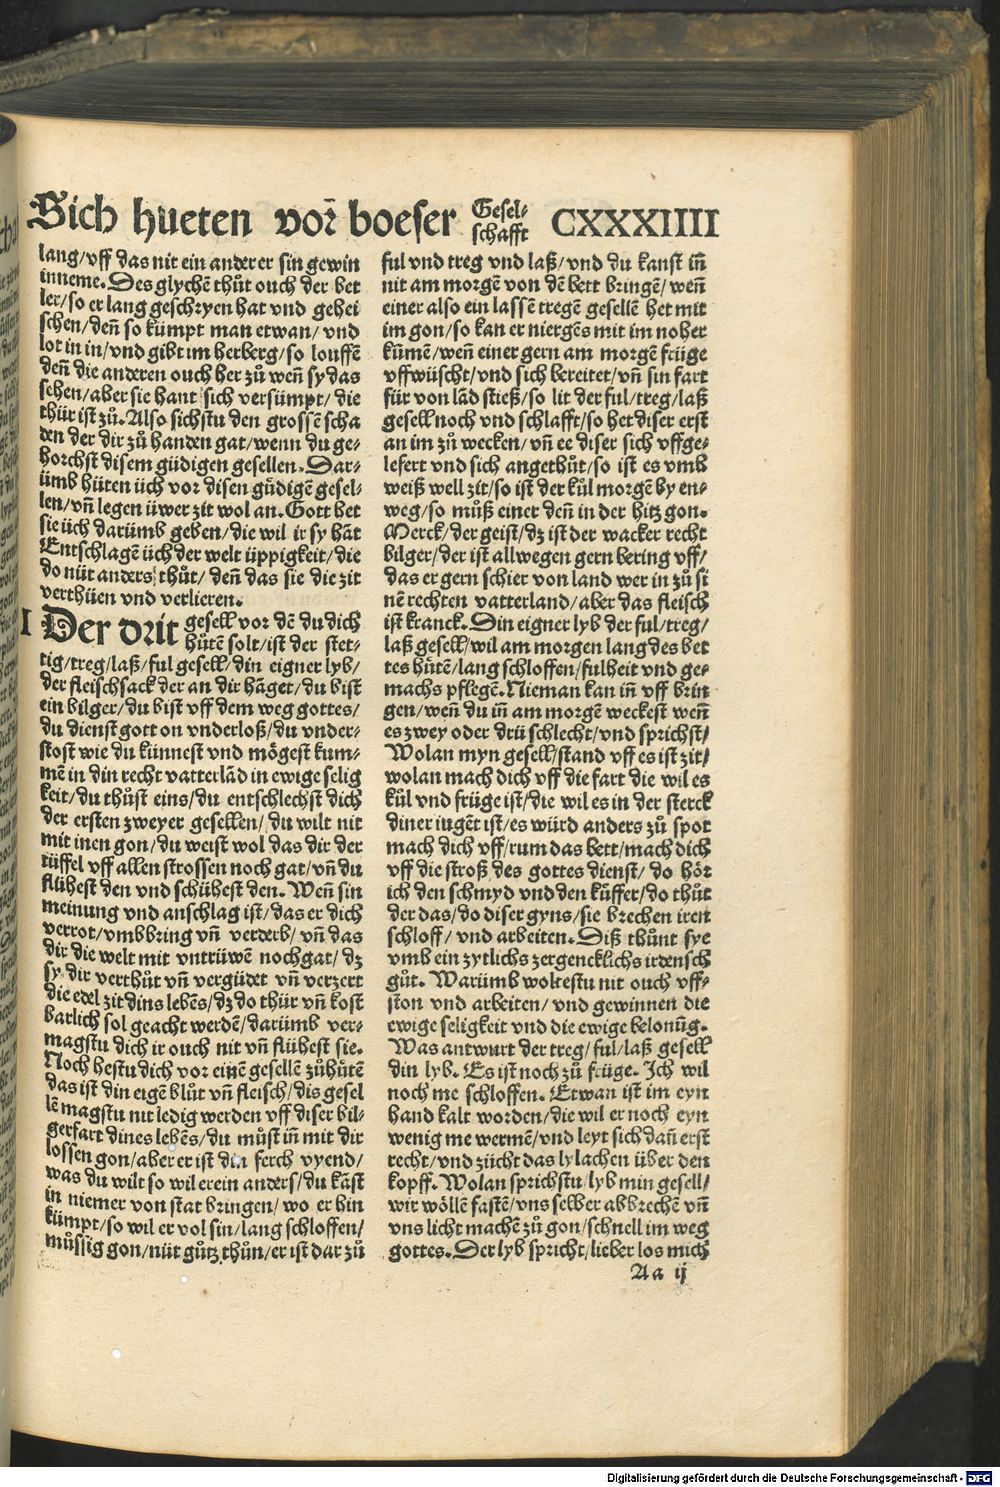 Sich hueten vor̃ boeser Gesel-
schafft CXXXIIII
lang/vff das nit ein anderer sin gewin
inneme. Des glychē thůt ouch der bet
ler/so er lang geschryen hat vnd gehei
schen/deñ so kümpt man etwan/vnd
lot in in/vnd gibt im herberg/so louffē
deñ die anderen ouch her zů weñ sy das
sehen/aber sie hant sich versümpt/die
thür ist zů. Also sichstu den grossē scha
den der dir zů handen gat/wenn du ge-
horchst disem güdigen gesellen. Dar-
ümb hüten üch vor disen güdigē gesel-
len/vñ legen üwer zit wol an. Gott het
sie üch darümb geben/die wil ir sy hāt
Entschlagē üch der welt üppigkeit/die
do nüt anders thůt/deñ das sie die zit
verthüen vnd verlieren.
I Der drit gesell vor dē du dich
hütē solt/ist der stet-
tig/treg/laß/ful gesell/din eigner lyb/
der fleischsack der an dir hāget/du bist
ein bilger/du bist vff dem weg gottes/
du dienst gott on vnderloß/du vnder-
stost wie du künnest vnd mögest kum-
mē in din recht vatterlād in ewige selig
keit/du thůst eins/du entschlechst dich
der ersten zweyer gesellen/du wilt nit
mit inen gon/du weist wol das dir der
tüffel vff allen strossen noch gat/vñ du
flühest den vnd schühest den. Weñ sin
meinung vnd anschlag ist/das er dich
verrot/vmbbring vñ verderb/vñ das
dir die welt mit vntrüwē nochgat/dz
sy dir verthůt vñ vergüdet vñ verzert
die edel zit dins lebēs/dz do thür vñ kost
barlich sol geacht werdē/darümb ver-
magstu dich ir ouch nit vñ flühest sie.
Noch hestu dich vor einē gesellē zůhütē
das ist din eigē blůt vñ fleisch/dis gesel
lē magstu nit ledig werden vff diser bil-
gerfart dines lebēs/du můst iñ mit dir
lossen gon/aber er ist din ferch vyend/
was du wilt so wil er ein anders/du kāst
in niemer von stat bringen/wo er hin
kümpt/so wil er vol sin/lang schloffen/
můssig gon/nüt gůtz thůn/er ist dar zů
ful vnd treg vnd laß/vnd du kanst iñ
nit am morgē von dē bett bringē/weñ
einer also ein lassē tregē gesellē het mit
im gon/so kan er niergēs mit im noher
kūmē/weñ einer gern am morgē früge
vffwüscht/vnd sich bereitet/vñ sin fart
für von lād stieß/so lit der ful/treg/laß
gesell noch vnd schlafft/so het diser erst
an im zů wecken/vñ ee diser sich vffge-
lefert vnd sich angethůt/so ist es vmb
weiß well zit/so ist der kůl morgē by en-
weg/so můß einer deñ in der hitz gon.
Merck/der geist/dz ist der wacker recht
bilger/der ist allwegen gern bering vff/
das er gern schier von land wer in zů si
nē rechten vatterland/aber das fleisch
ist kranck. Din eigner lyb der ful/treg/
laß gesell/wil am morgen lang des bet
tes hütē/lang schloffen/fulheit vnd ge-
machs pflegē. Nieman kan iñ vff brin
gen/weñ du iñ am morgē weckest weñ
es zwey oder drü schlecht/vnd sprichst/
Wolan myn gesell/stand vff es ist zit/
wolan mach dich vff die fart die wil es
kůl vnd früge ist/die wil es in der sterck
diner iugēt ist/es würd anders zů spot
mach dich vff/rum das bett/mach dich
vff die stroß des gottes dienst/do hör
ich den schmyd vnd den küffer/do thůt
der das/do diser gyns/sie brechen iren
schloff/vnd arbeiten. Diß thůnt sye
vmb ein zytlichs zergencklichs irdensch
gůt. Warümb woltestu nit ouch vff-
ston vnd arbeiten/vnd gewinnen die
ewige seligkeit vnd die ewige belonūg.
Was antwurt der treg/ful/laß gesell
din lyb. Es ist noch zů früge. Ich wil
noch me schloffen. Etwan ist im eyn
hand kalt worden/die wil er noch eyn
wenig me wermē/vnd leyt sich dañ erst
recht/vnd zücht das lylachen über den
kopff. Wolan sprichstu/lyb min gesell/
wir wöllē fastē/vns selber abbrechē vñ
vns licht machē zů gon/schnell im weg
gottes. Der lyb spricht/lieber los mich
Aa ij
Digitalisierung gefördert durch die Deutsche Forschungsgemeinschaft - DFG